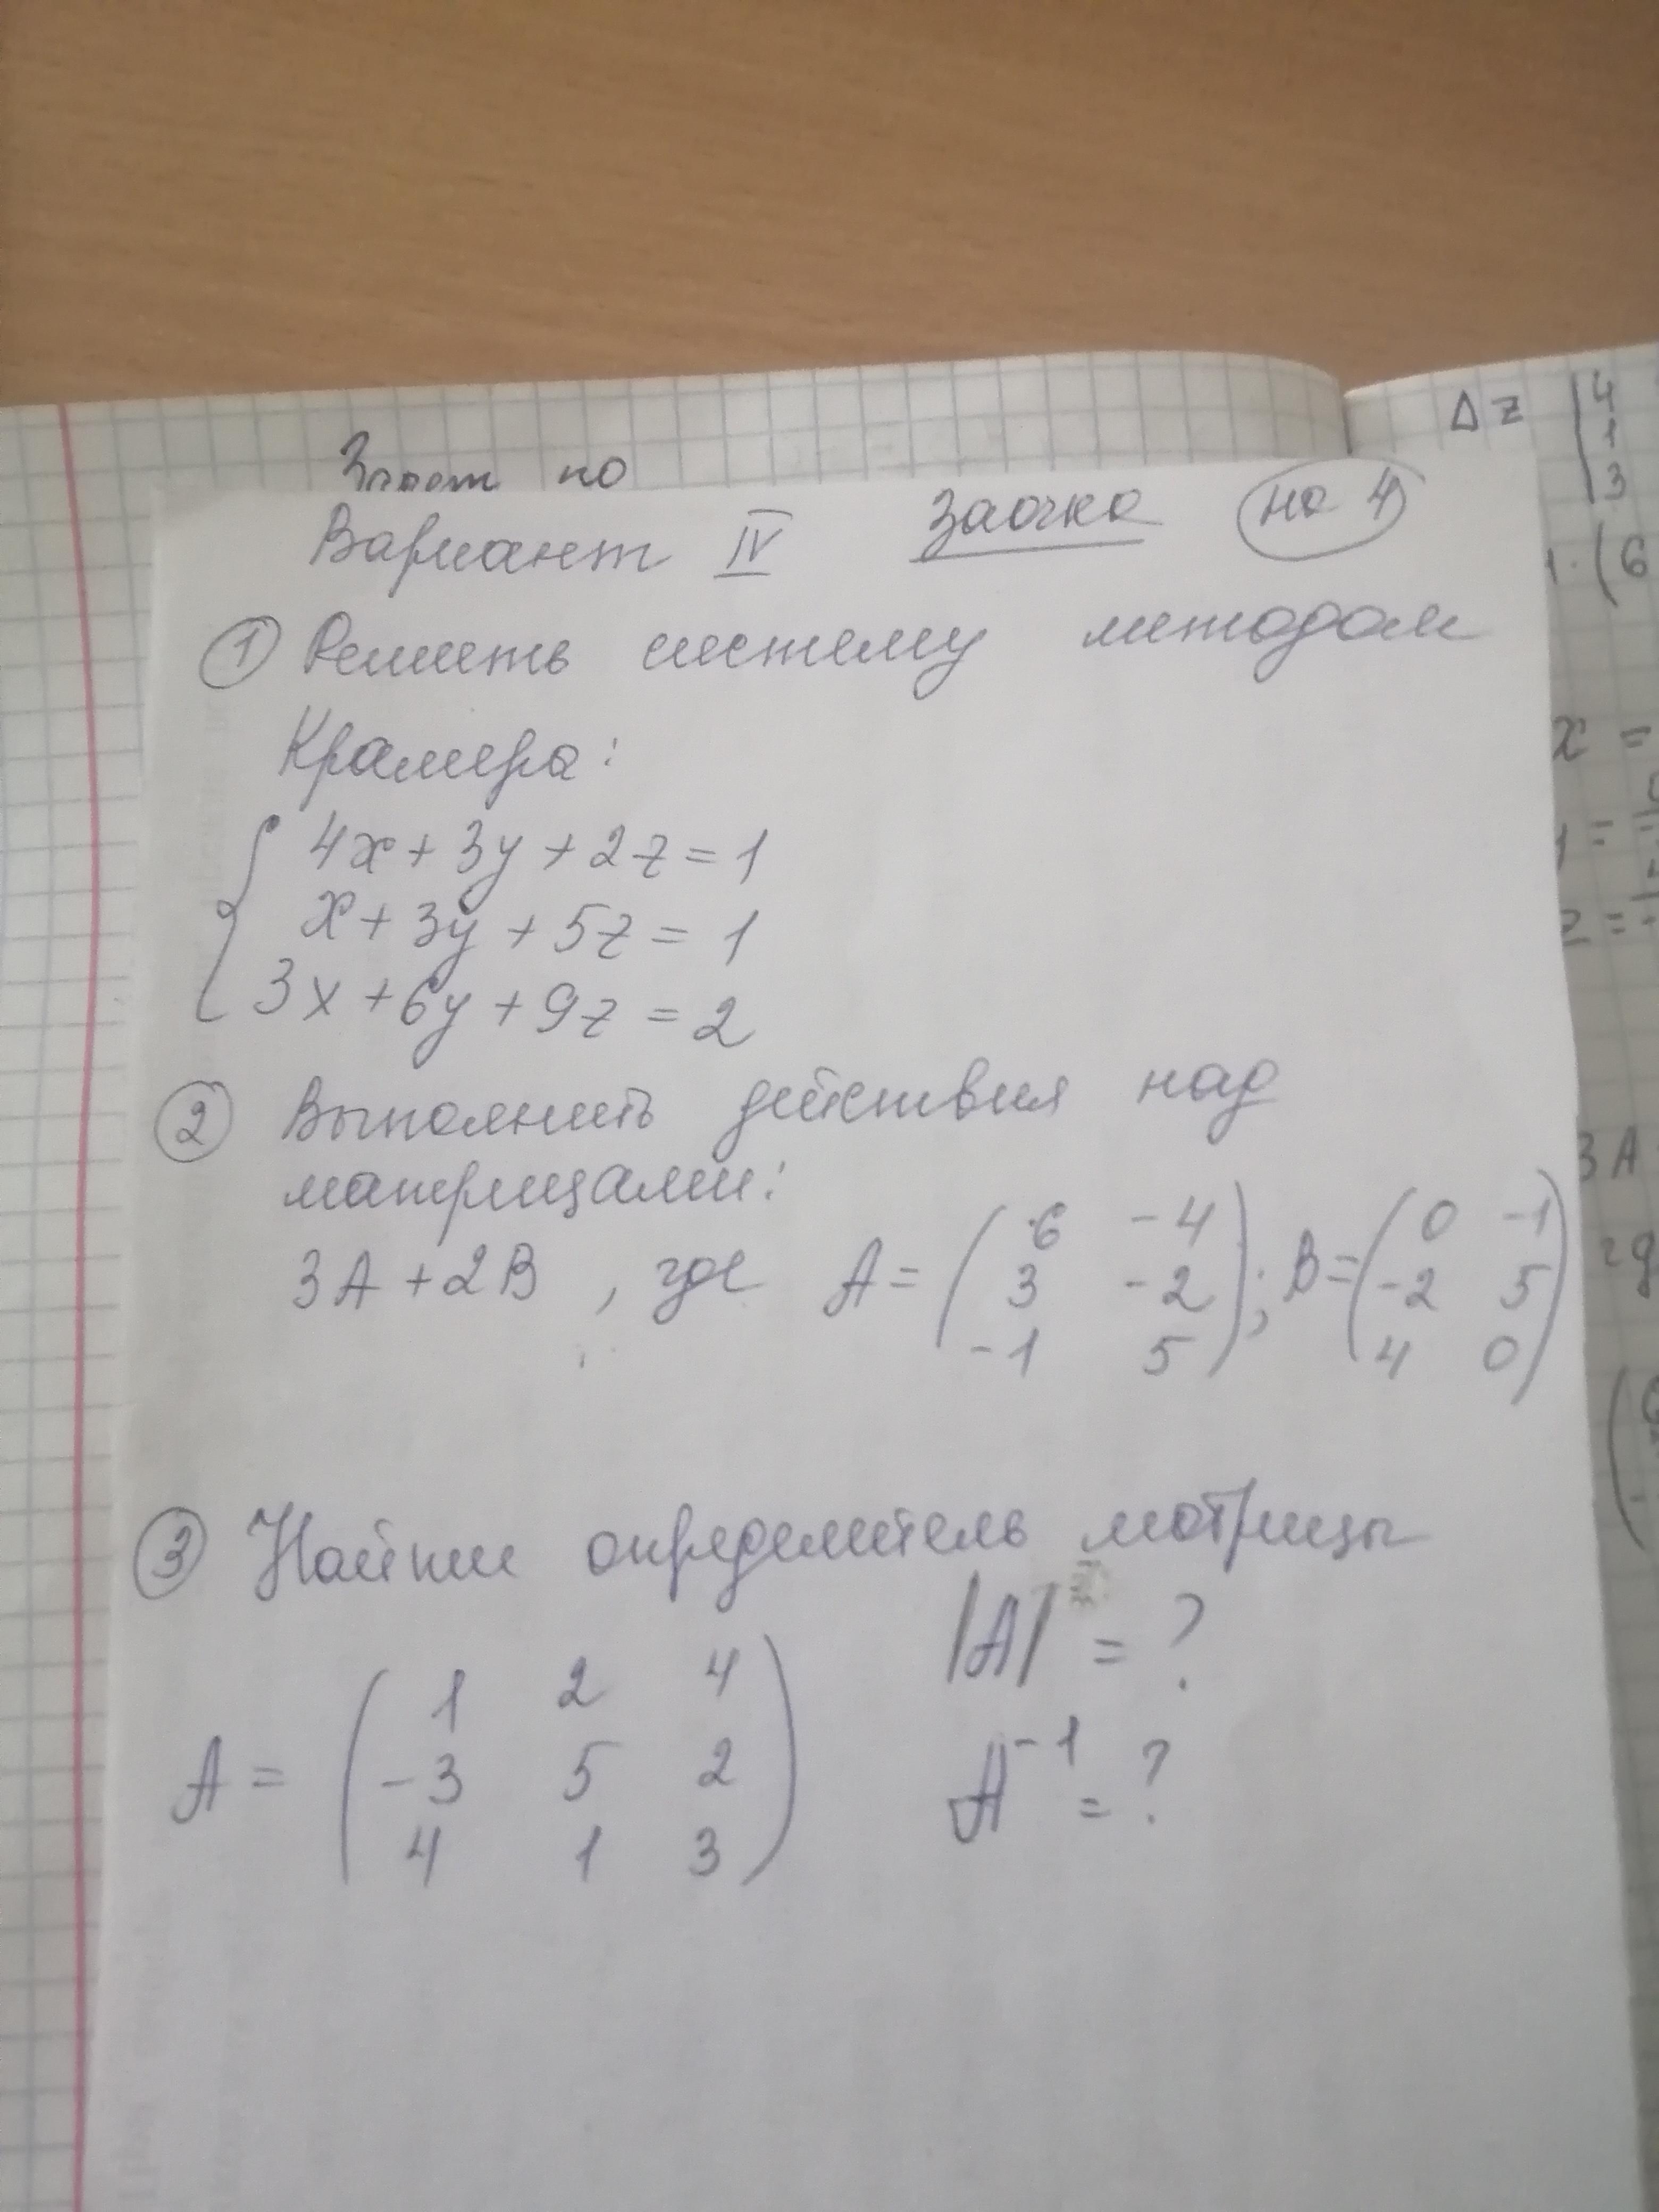 Зачет по
Вариант IV Заочка на 4
① Решить систему методом
Крамера:
4x + 3y + 2z = 1
x + 3y + 5z = 1
3x + 6y + 9z = 2
② Выполнить действия над
матрицами:
3A + 2B , где A = ( 6 -4 ; B = ( 0 -1
3 -2 -2 5
-1 5 ) 4 0 )
③ Найти определитель матрицы
|A| = ?
A = ( 1 2 4
-3 5 2
4 1 3 )
A⁻¹ = ?
Δz | 4
1
3
1·(6
x =
z =
3A